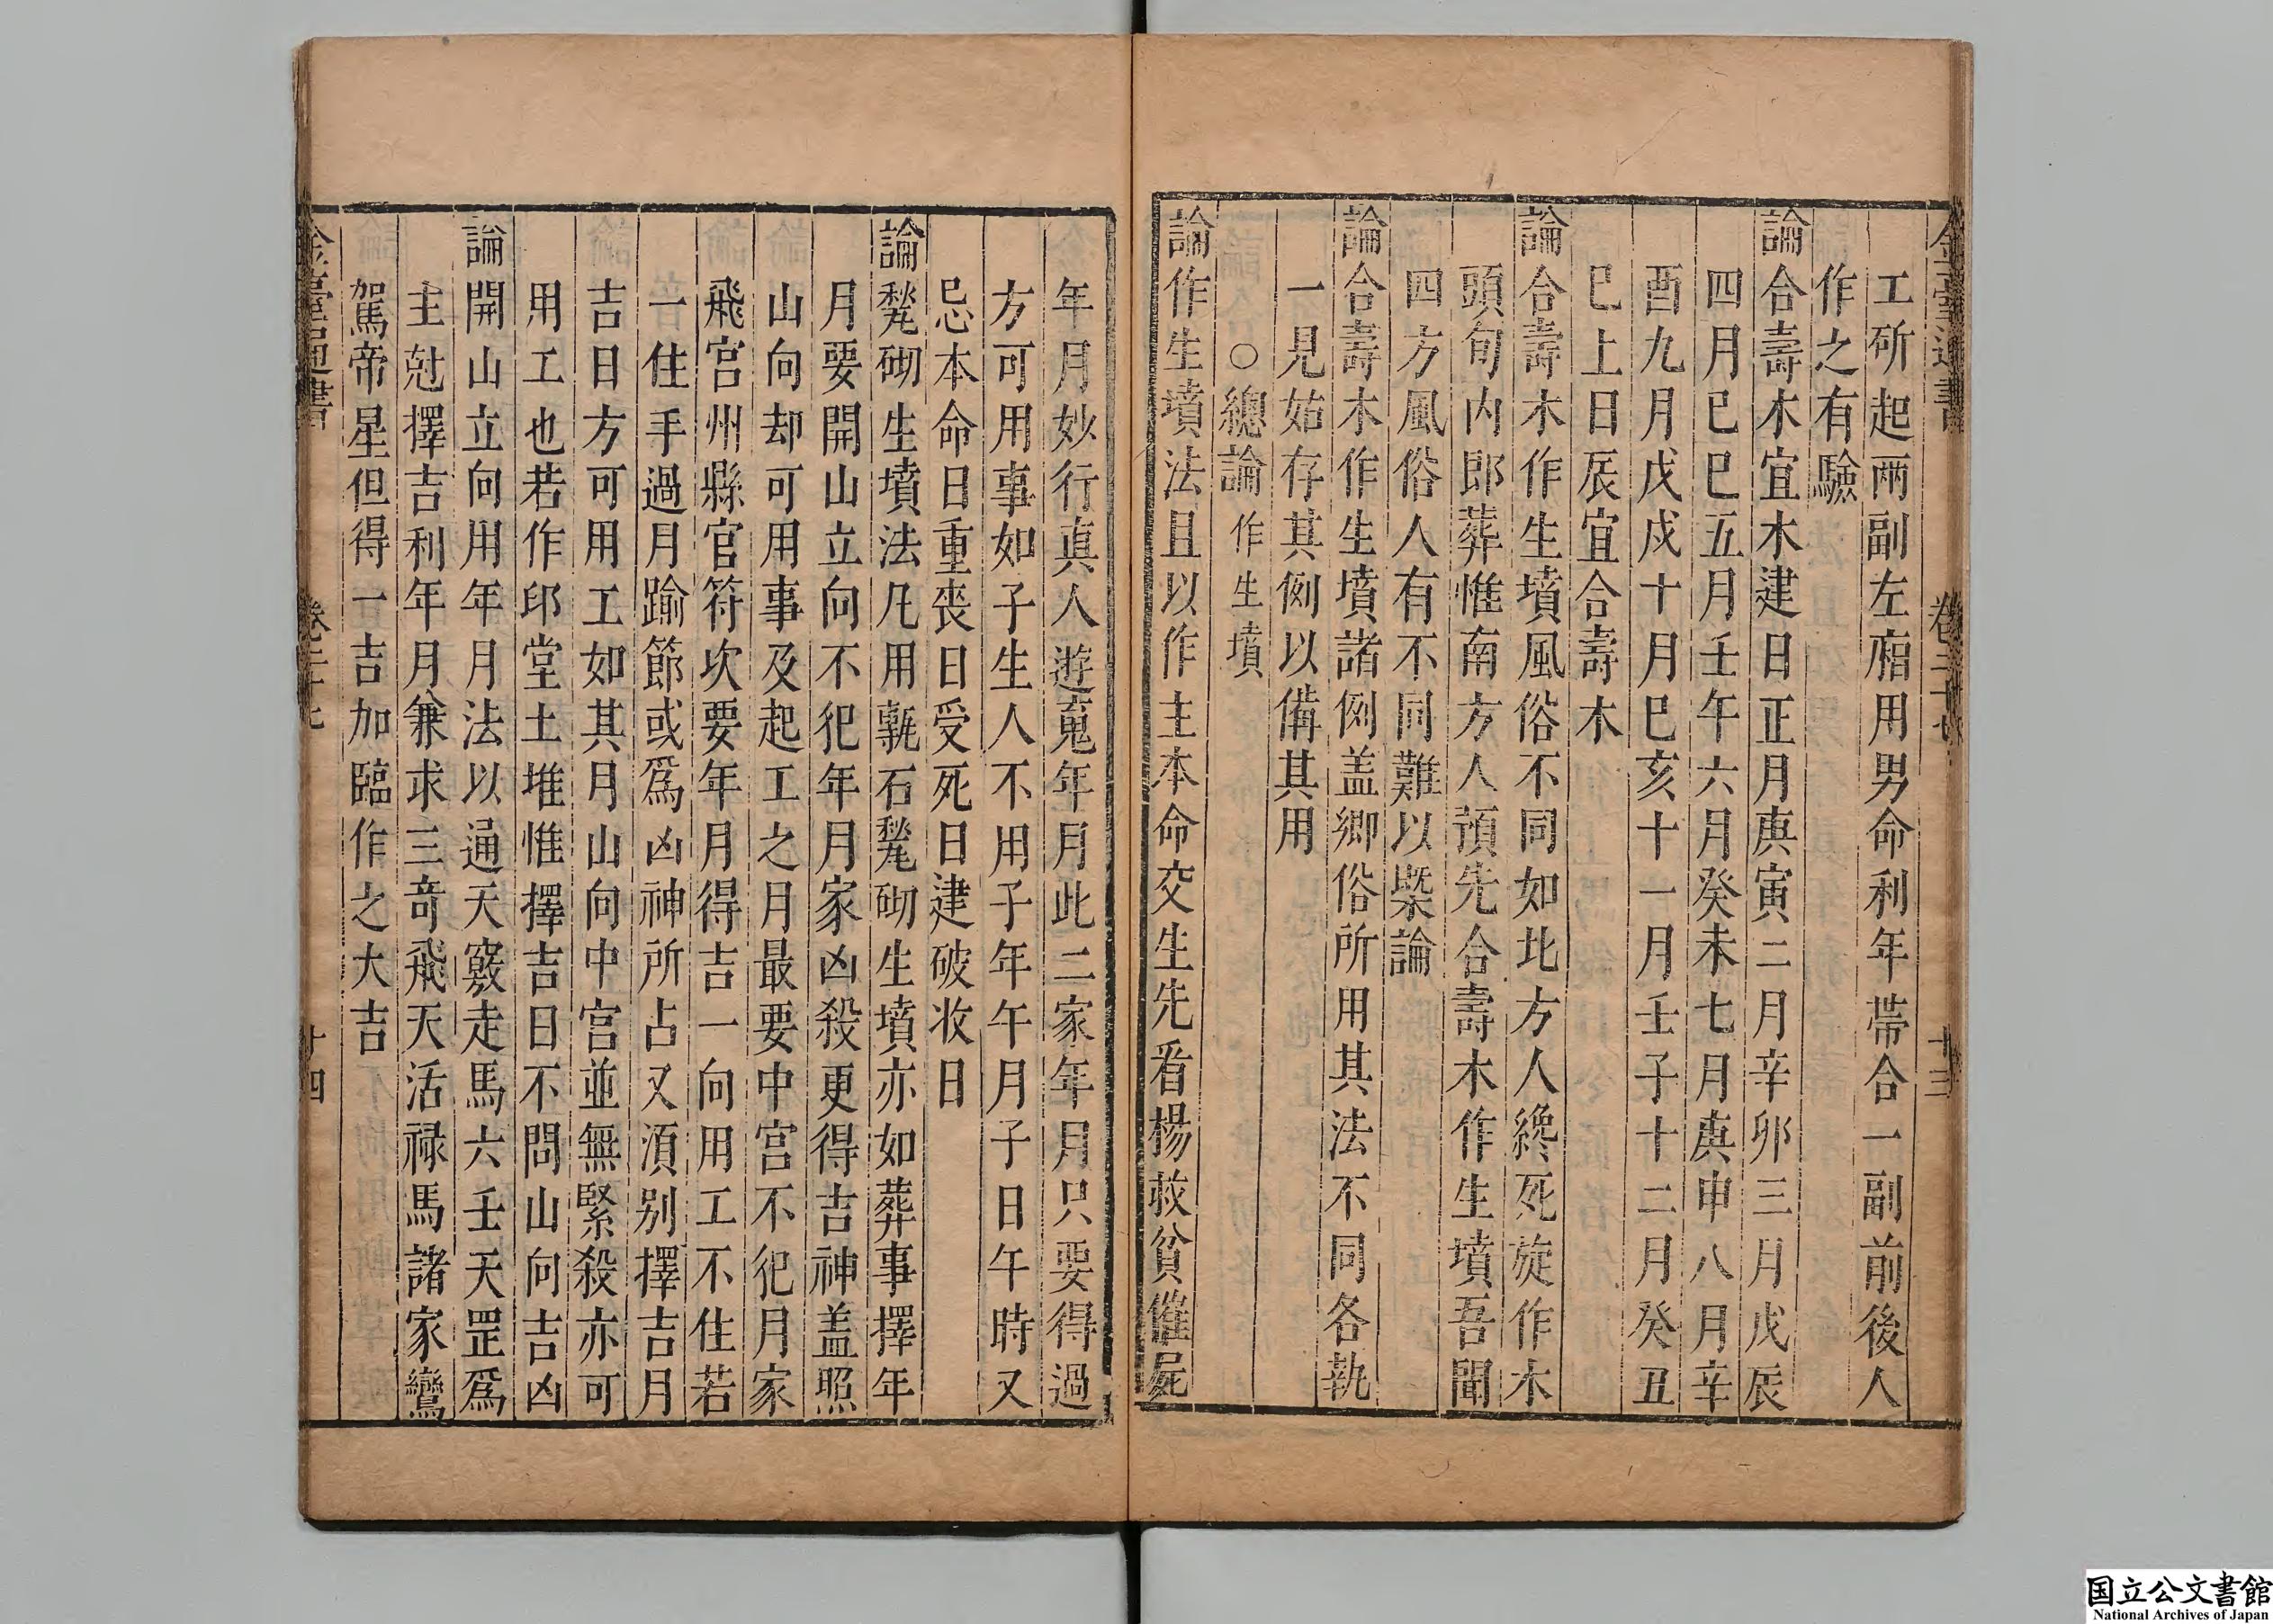 工斫起兩副左廂用男命利年帶合一副前後人
作之有驗
論合壽木宜木建日正月庚寅二月辛卯三月戊辰
四月巳巳五月壬午六月癸未七月庚申八月辛
酉九月戊戌十月巳亥十一月壬子十二月癸丑
巳上日辰宜合壽木
論合壽木作生墳風俗不同如北方人纔死旋作木
頭旬内即葬惟南方人預先合壽木作生墳吾聞
四方風俗人有不同難以槩論
論合壽木作生墳諸例盖鄉俗所用其法不同各執
一見姑存其例以備其用
○總論作生墳
論作生墳法且以作主本命交生先看楊救貧催屍
年月妙行真人遊䰟年月此二家年月只要得過
方可用事如子生人不用子年午月子日午時又
忌本命日重喪日受死日建破收日
論甃砌生墳法凡用甎石甃砌生墳亦如葬事擇年
月要開山立向不犯年月家凶殺更得吉神盖照
山向却可用事及起工之月最要中宮不犯月家
飛宮州縣官符次要年月得吉一向用工不住若
一住手過月踰節或爲凶神所占又須别擇吉月
吉日方可用工如其月山向中宮並無緊殺亦可
用工也若作印堂土堆惟擇吉日不問山向吉凶
論開山立向用年月法以通天竅走馬六壬天罡爲
主尅擇吉利年月兼求三奇飛天活祿馬諸家鸞
駕帝星但得一吉加臨作之大吉
金臺通書
卷二十七
十三
卷二十七
十四
国立公文書館
National Archives of Japan